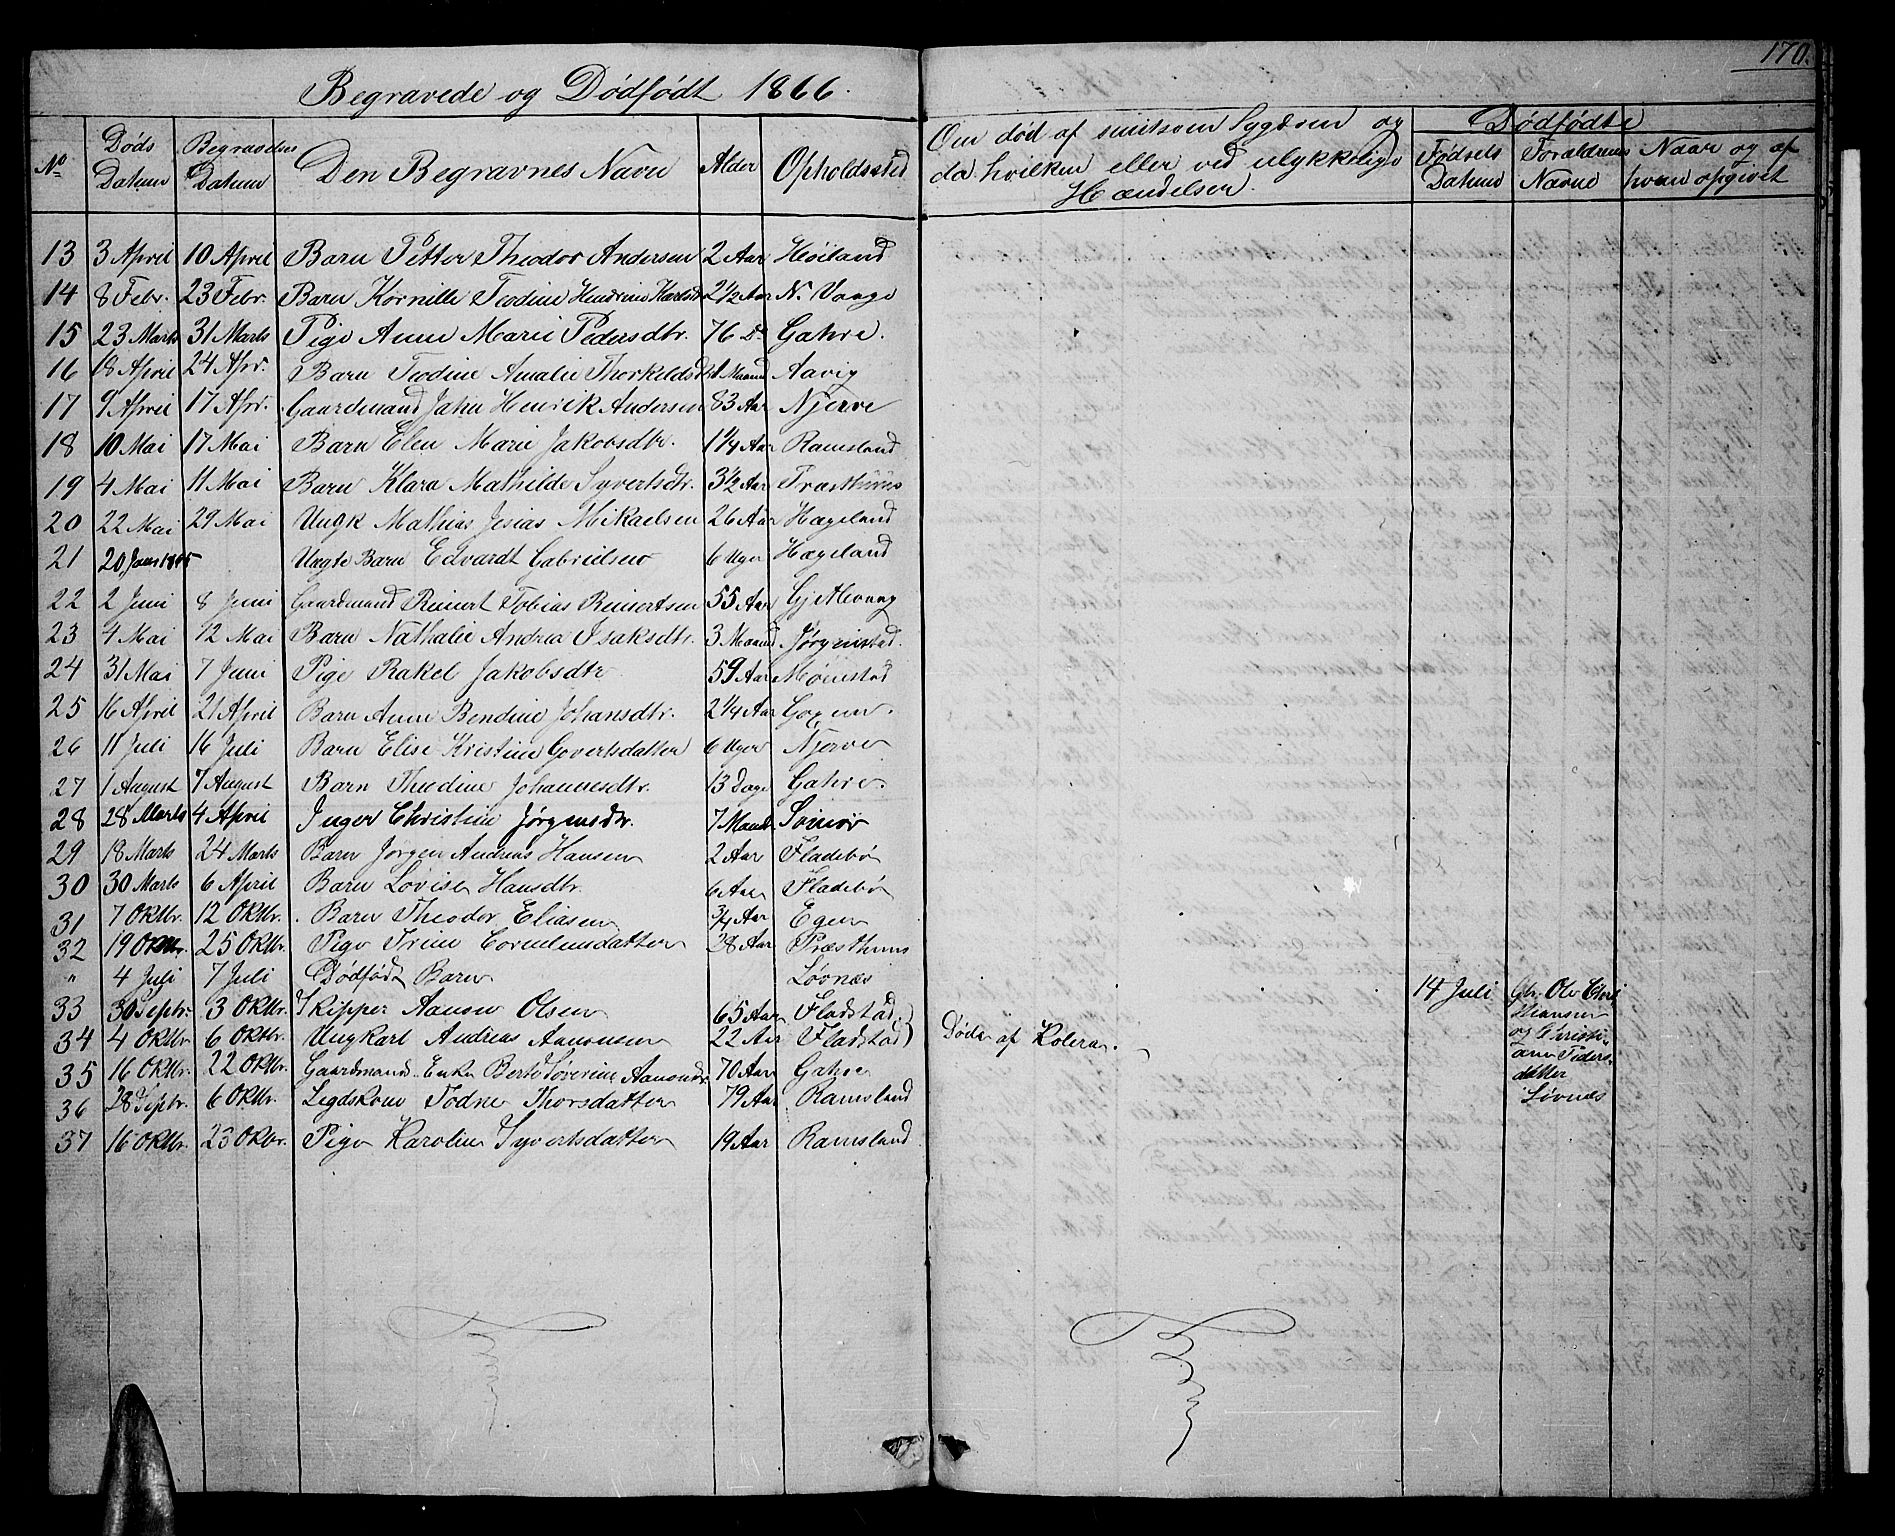 170.
Begravede og Dødfødt 1866.
No Døds Datum Begravelses Datum Den Begravnes Navn Alder Opholdssted Om død af smitsom Sygdom og da hvilken eller ved ulykkelige Hændelser. Dødfødte Fødsels Datum Forældrenes Navne Naar og af hvem opgivet
13 3 April 10 April Barn Petter Theodor Andersen 2 Aar Høiland
14 8 Febr. 23 Febr. Barn Kornille Teodine Hendrine Karlsdtr 2½ Aar N. Vaage
15 23 Marts 31 Marts Pige Anne Marie Pedersdtr. 76 Do Gahre.
16 18 April 24 Apr. Barn Teodine Amalie Thorkeldsdtr 1 Maaned Aavig
17 9 April 17 Apr. Gaardmand Jahn Henrik Andersen 83 Aar Njerve
18 10 Mai 17 Mai Barn Elen Marie Jakobsdtr. 1¼ Aar Ramsland
19 4 Mai 11 Mai Barn Klara Mathilde Syvertsdtr. 3½ Aar
20 22 Mai 29 Mai Ungk Mathias Jesias Mikaelsen 26 Aar Hægeland
21 20 Uægte Barn Edvardt Gabrielsen 6 Uger Hægeland
22 2 Juni 8 Juni Gaardmand Reinert Tobias Reinertsen 55 Aar
23 4 Mai 12 Mai Barn Nathalie Andrea Isaksdtr. 3 Maaned Jørgenstad.
24 31 Mai 7 Juni Pige Rakel Jakobsdtr 59 Aar Møinstad
25 16 April 21 April Barn Anne Bendine Johansdtr. 2¼ Aar
26 11 Juli 16 Juli Barn Elise Kristine Govertsdatter 6 Uger Njerve
27 1 August 7 August Barn Thedine Johannesdtr. 13 Dage Gahre.
28 28 Marts 4 April Inger Christine Jørgensdtr. 7 Maan
29 18 Marts 24 Marts Barn Jørgen Andreas Hansen 2 Aar Fladebø
30 30 Marts 6 April Barn Lovise Hansdtr. 6 Aar Fladebø
31 7 Oktbr. 12 Oktbr. Barn Theodor Eliasen ¾ Aar Egen
32 19 Oktbr 25 Oktbr. Pige Trine Corneliusdatter 28 Aar Præsthuus
" 4 Juli 7 Juli Dødfødt Barn Løvnes 14 Juli
33 30 Septr. 3 Oktbr. Skipper Aanen Olsen 65 Aar Fladstad
34 4 Oktbr 6 Oktbr. Ungkarl Andreas Aanensen 22 Aar Fladstad) Døde af Kolera.
35 16 Oktbr 22 Oktbr. Gaardmand Enke Berte Severine Aanensdr 70 Aar Gahre
36 28 Septr. 6 Oktbr. Legdskone Todne Thorsdatter 79 Aar Ramsland
37 16 Oktbr. 23 Oktbr. Pige Karoline Syvertsdatter 19 Aar Ramsland
Ole
Hansen
og Christi-
ane Peders-
datter
Løvnes